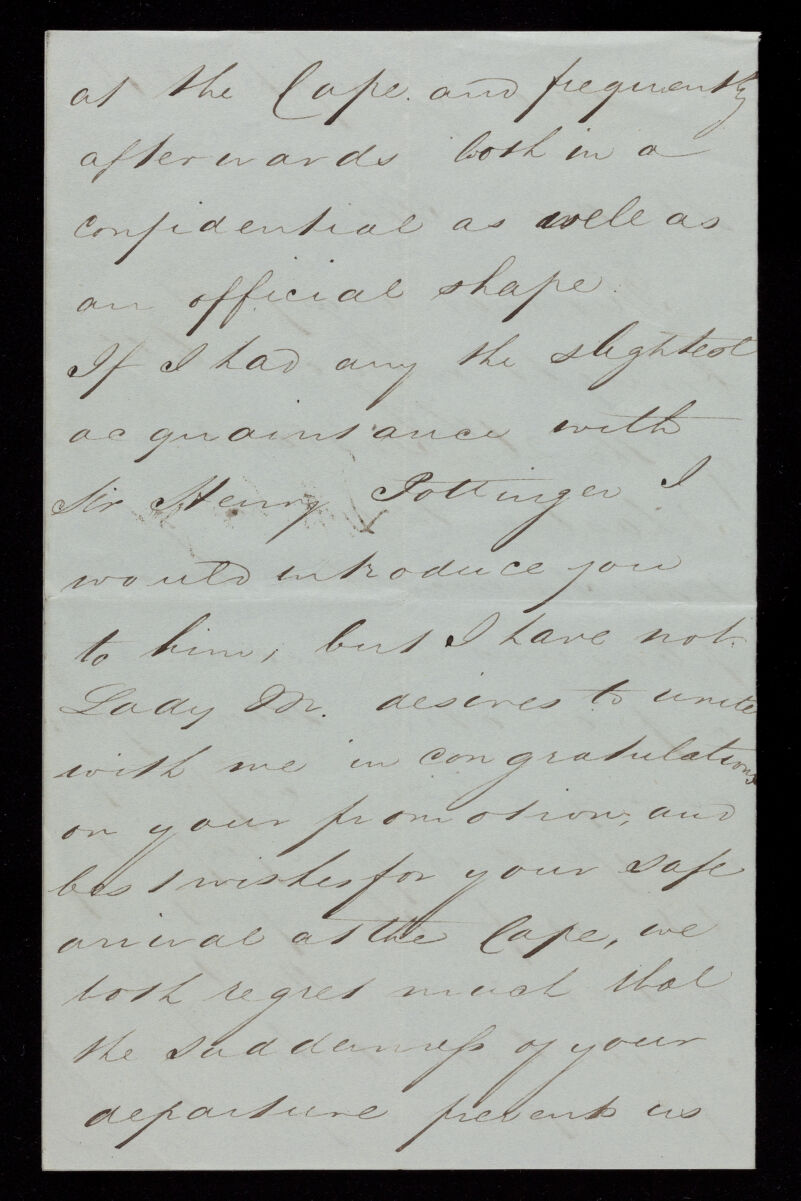 at the Cape. and frequently
afterwards both in a
confidential as well as
an official shape.
If I had any the slightest
acquaintance with
Sir Henry Pottinger I
would introduce you
to him, but I have not.
Lady M. desires to unite
with me in congratulations
on your promotion, and
best wishes for your safe
arrival at the Cape, we
both regret much that
the suddenness of your
departure prevents us